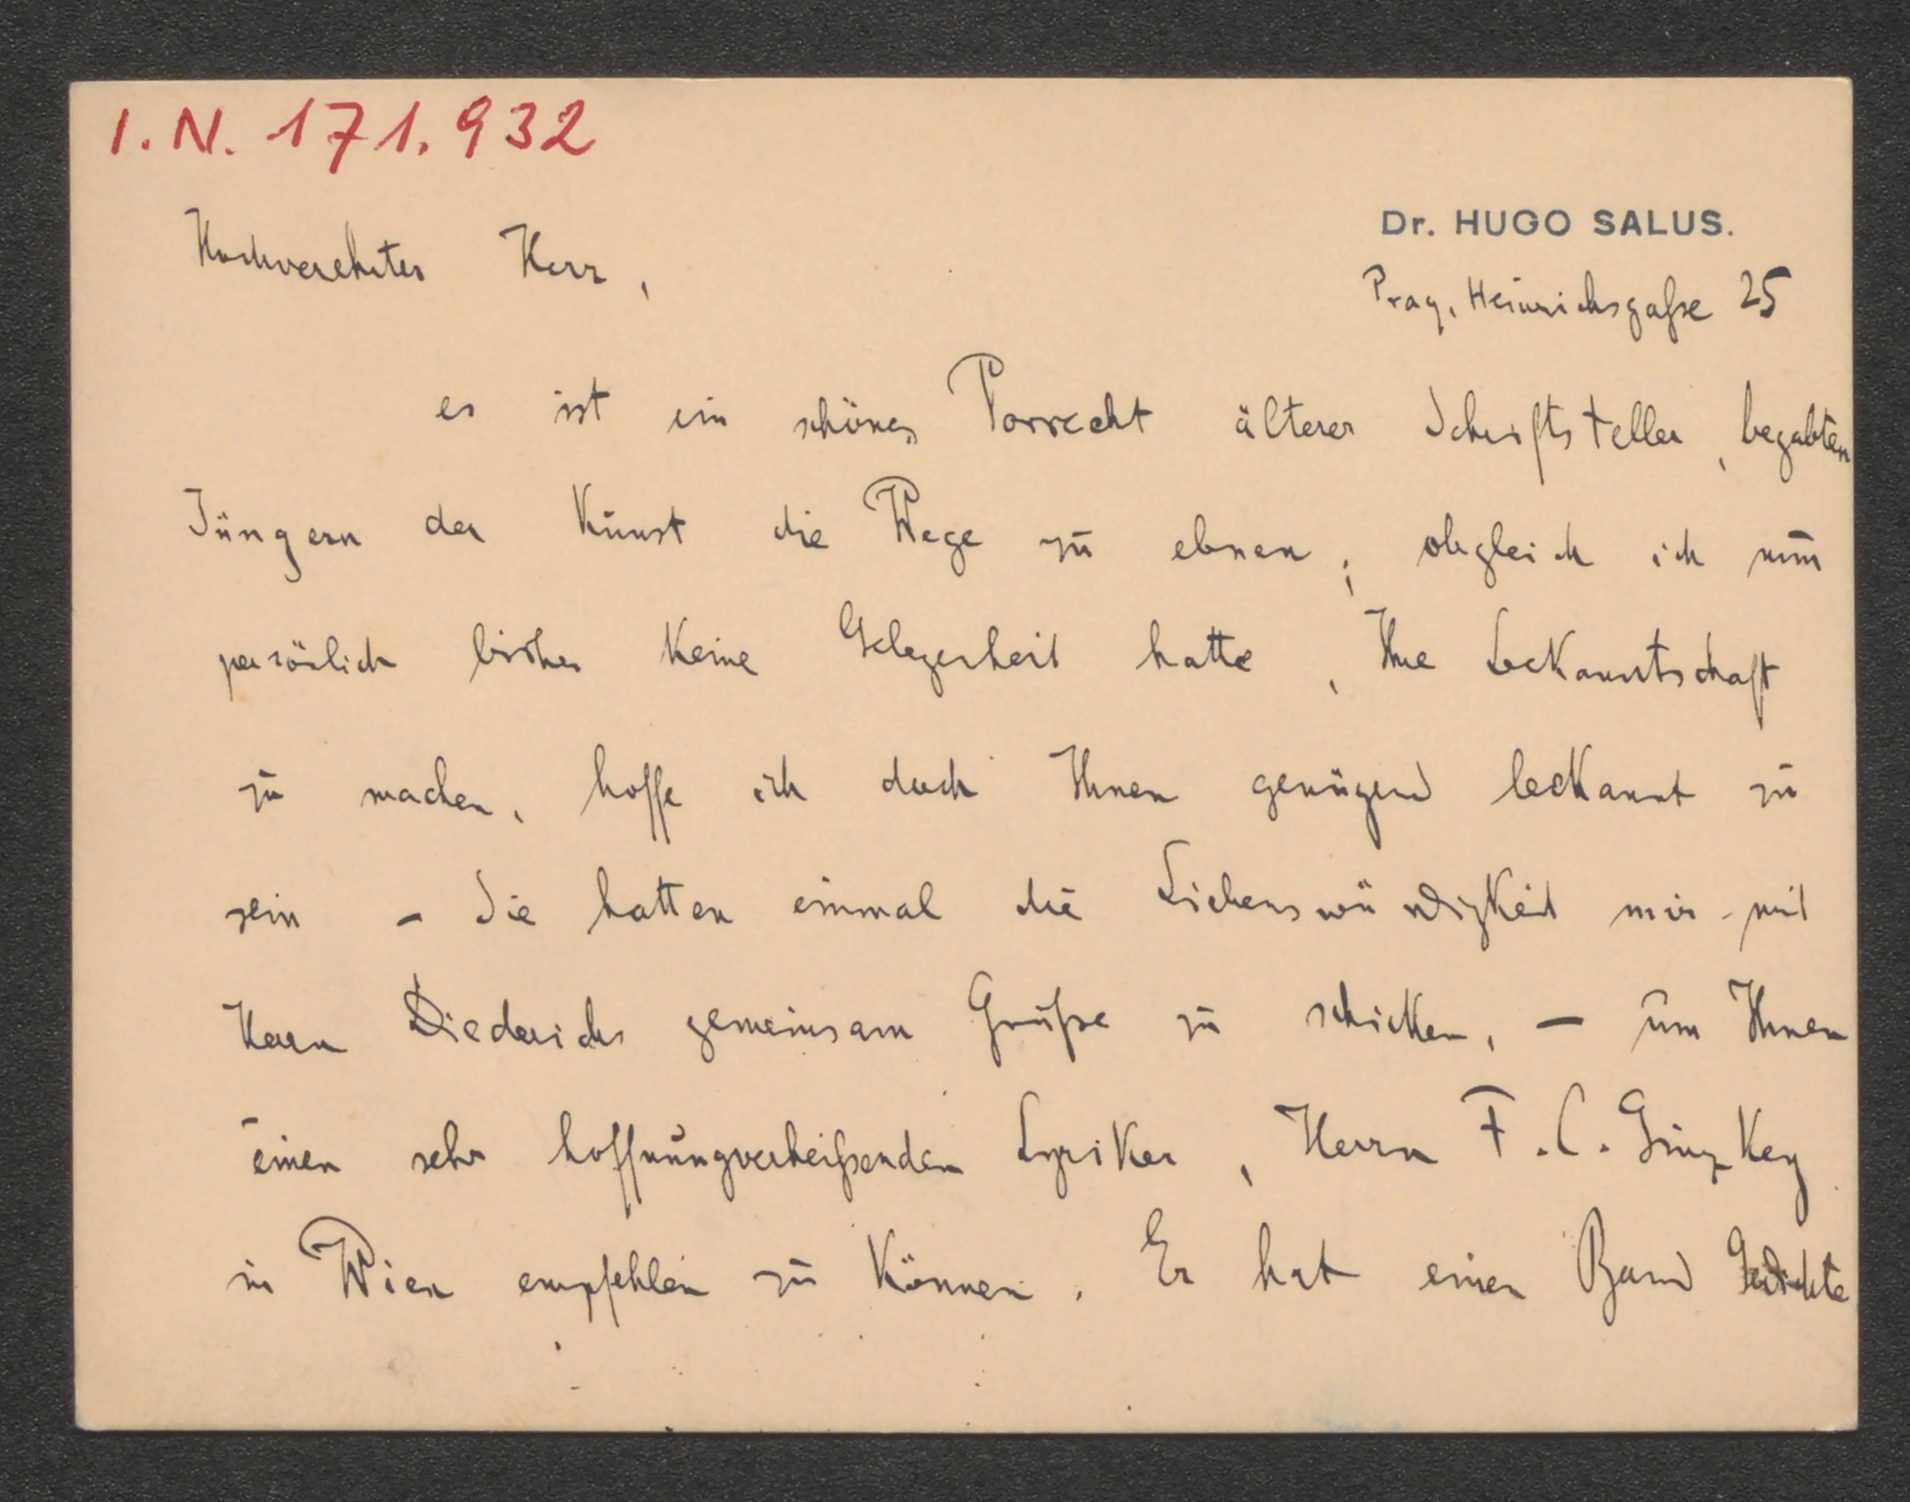 I.N. 171.932
Dr. HUGO SALUS.
Prag, Heinrichsgaße 25
Hochverehrter Herr,
es ist ein schönes Vorrecht älterer Schriftsteller, begabten
Jüngern der Kunst die Wege zu ebnen; obgleich ich nun
persönlich bisher keine Gelegenheit hatte, Ihre Bekanntschaft
zu machen, hoffe ich doch Ihnen genügend bekannt zu
sein – Sie hatten einmal die Liebenswürdigkeit mir mit
Herrn Diederichs gemeinsam Grüße zu schicken, – um Ihnen
einen sehr hoffnungverheißenden Lyriker, Herrn F. C. Ginzkey
in Wien empfehlen zu können. Er hat einen Band Gedichte